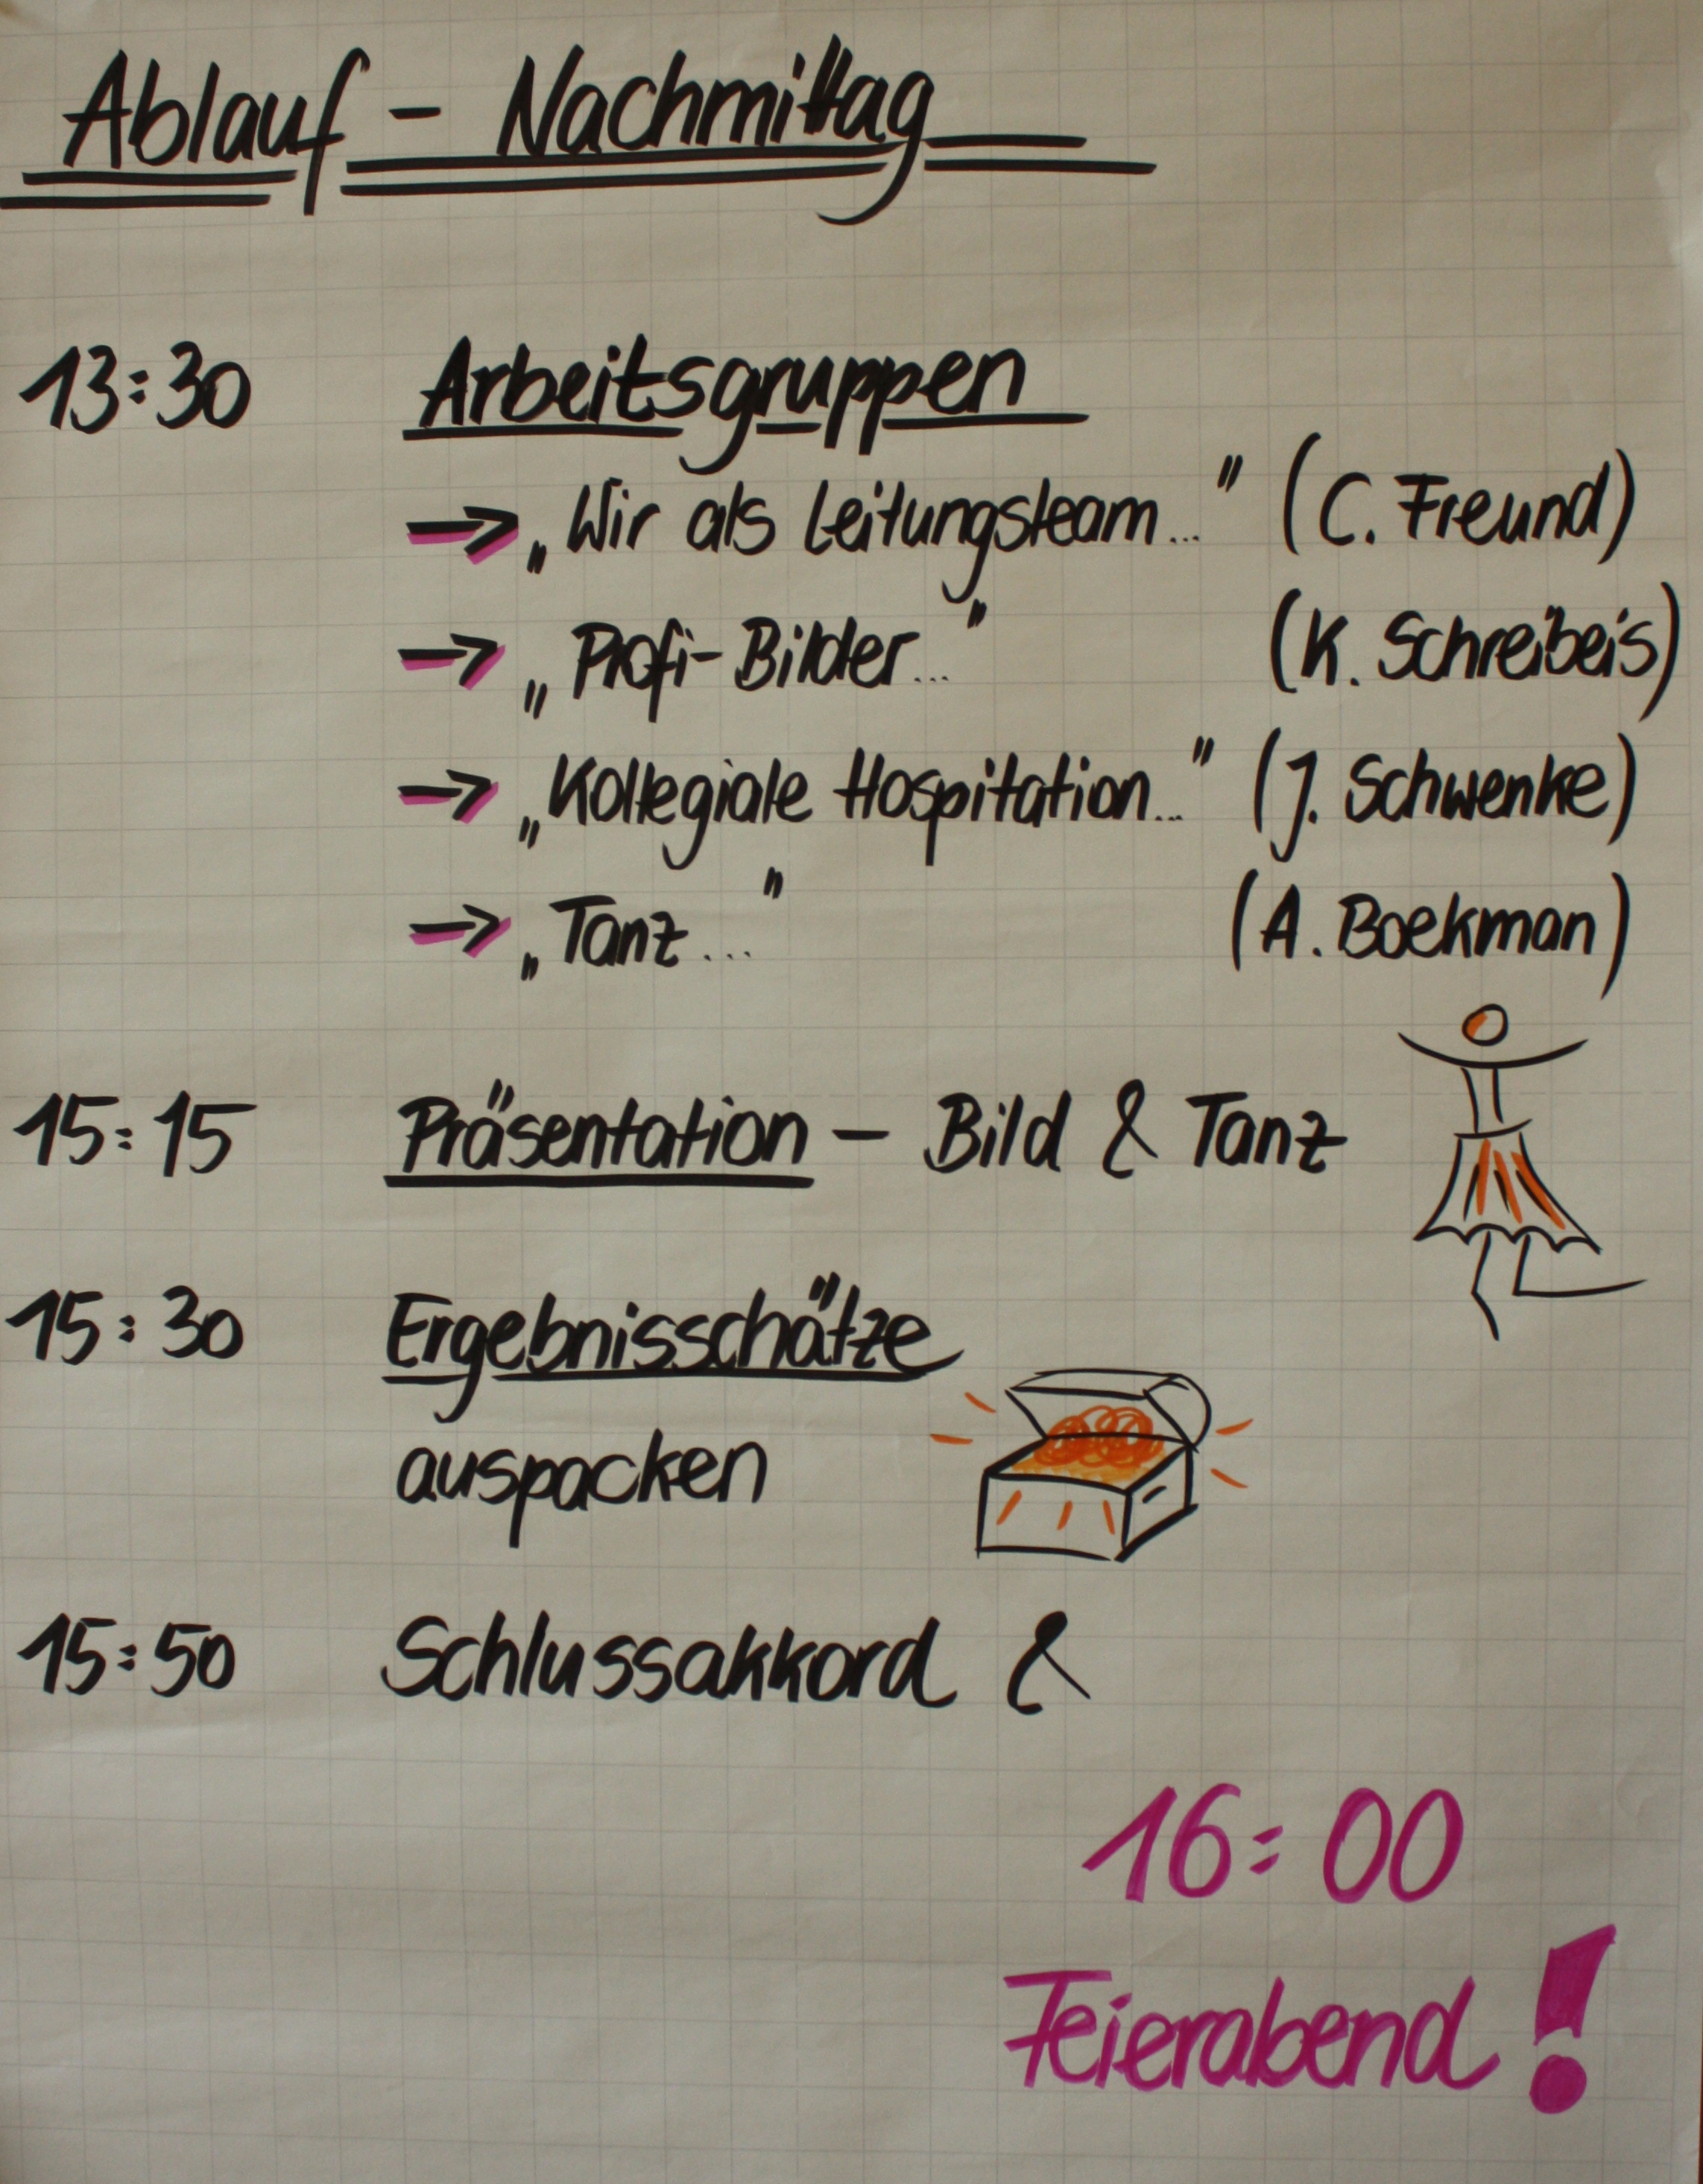 Ablauf - Nachmittag
13:30 Arbeitsgruppen
→ „Wir als Leitungsteam..." (C. Freund)
→ „Profi-Bilder..." (K. Schreibeis)
→ „Kollegiale Hospitation..." (J. Schwenke)
→ „Tanz..." (A. Boekman)
15:15 Präsentation – Bild & Tanz
15:30 Ergebnisschätze
auspacken
15:50 Schlussakkord &
16:00
Feierabend!